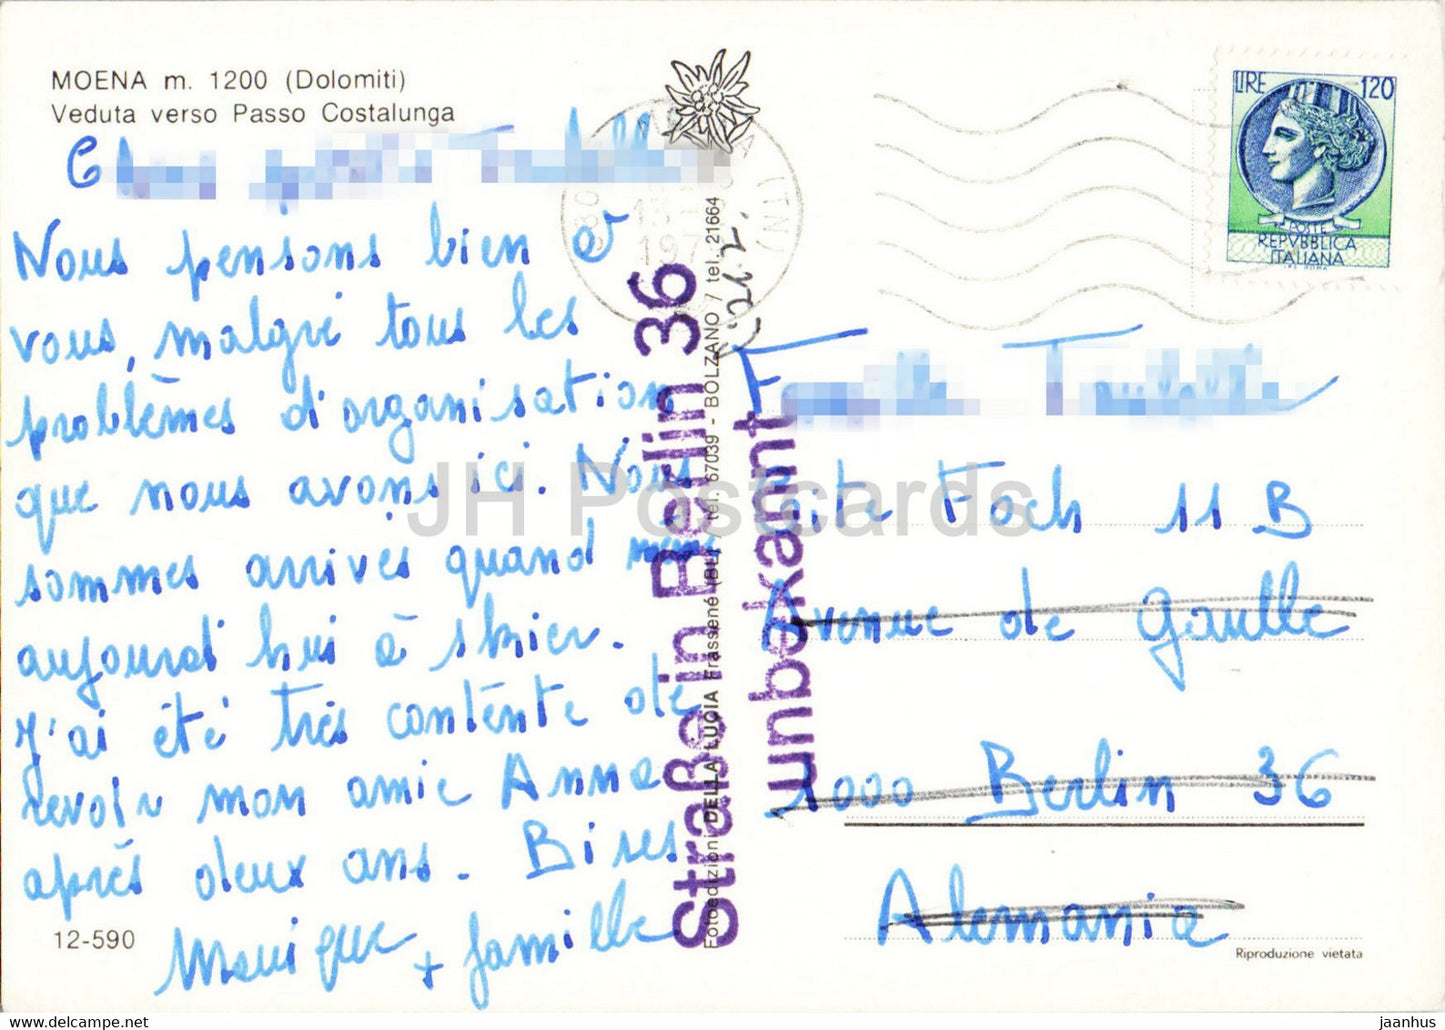 MOENA m. 1200 (Dolomiti)
Veduta verso Passo Costalunga
Nous pensons bien à
vous, malgré tous les
problèmes d'organisation
que nous avons ici. Nous
sommes arrivés quand même
aujourd'hui à skier.
J'ai été très contente de
revoir mon amie Anna
après deux ans. Bises
Monique + famille
12-590
LIRE 120
POSTE
REPVBBLICA
ITALIANA
Straße in Berlin 36
unbekannt
Fotoedizioni DELLA LUCIA Frassené (BL) / tel. 67039 - BOLZANO / tel. 21664
Cite Foch 11 B
Avenue de Gaulle
1000 Berlin 36
Alemanie
Riproduzione vietata
JH Postcards
www.delcampe.net
jaanhus